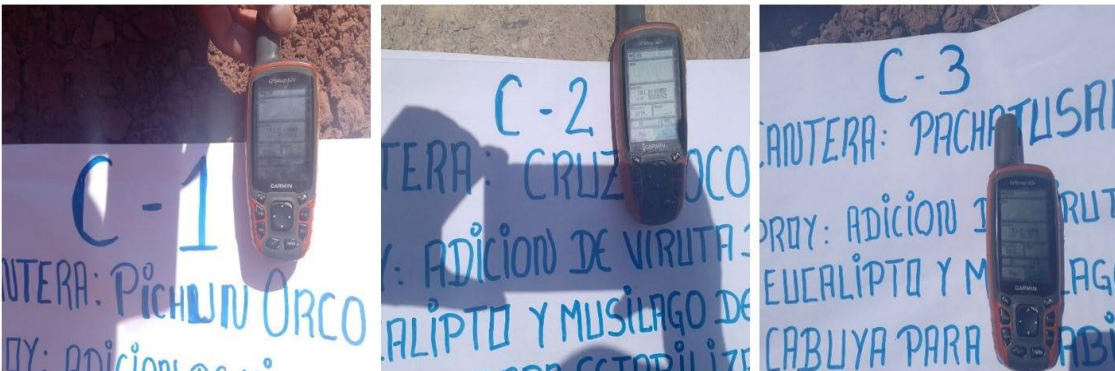 C-1
NTERA: PICHUN ORCO
C-2
TERA: CRUZ OCO
: ADICION DE VIRUTA
ALIPTO Y MUSILAGO DE
GARMIN
C-3
CANTERA: PACHATUSA
PROY: ADICION D RUT
EUCALIPTO Y M LAG
CABUYA PARA ABI
GARMIN
GARMIN